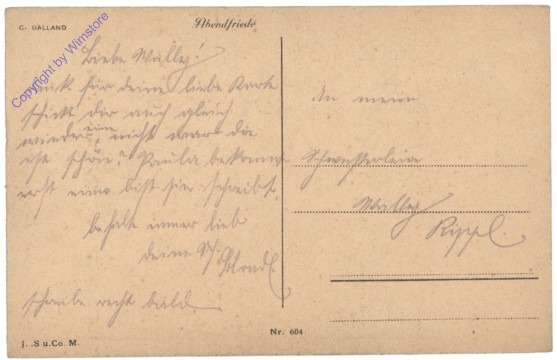 C. GALLAND
Abendfriede
Copyright by Wimstore
Liebe Wally!
Dank für deine liebe Karte
schicke dir auch gleich
wieder eine, nicht war die
ist schön? Paula bekommt
erst eine bist sie schreibt.
behalte immer lieb
deine
schreibe recht bald.
An meine
Schwesterlein
Wally
Rippl.
J. .S u. Co. M.
Nr. 604